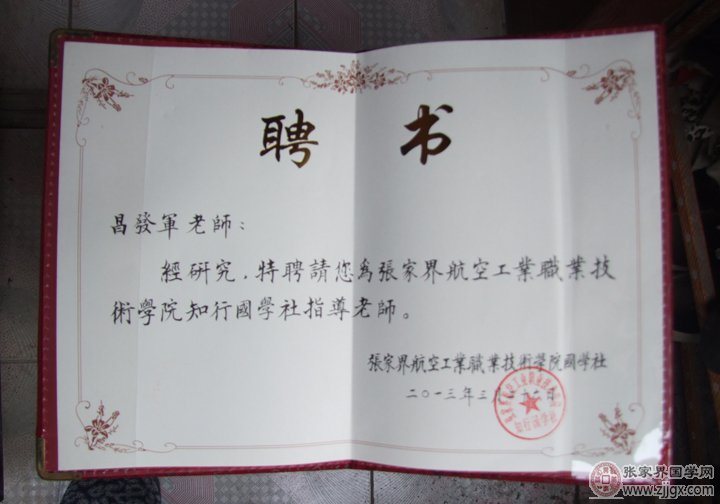 聘书
昌發軍老師：
經研究，特聘請您為張家界航空工業職業技
術學院知行國學社指導老師。
張家界航空工業職業技術學院國學社
二〇一三年三月十二日
张家界国学网
www.zjjgx.com